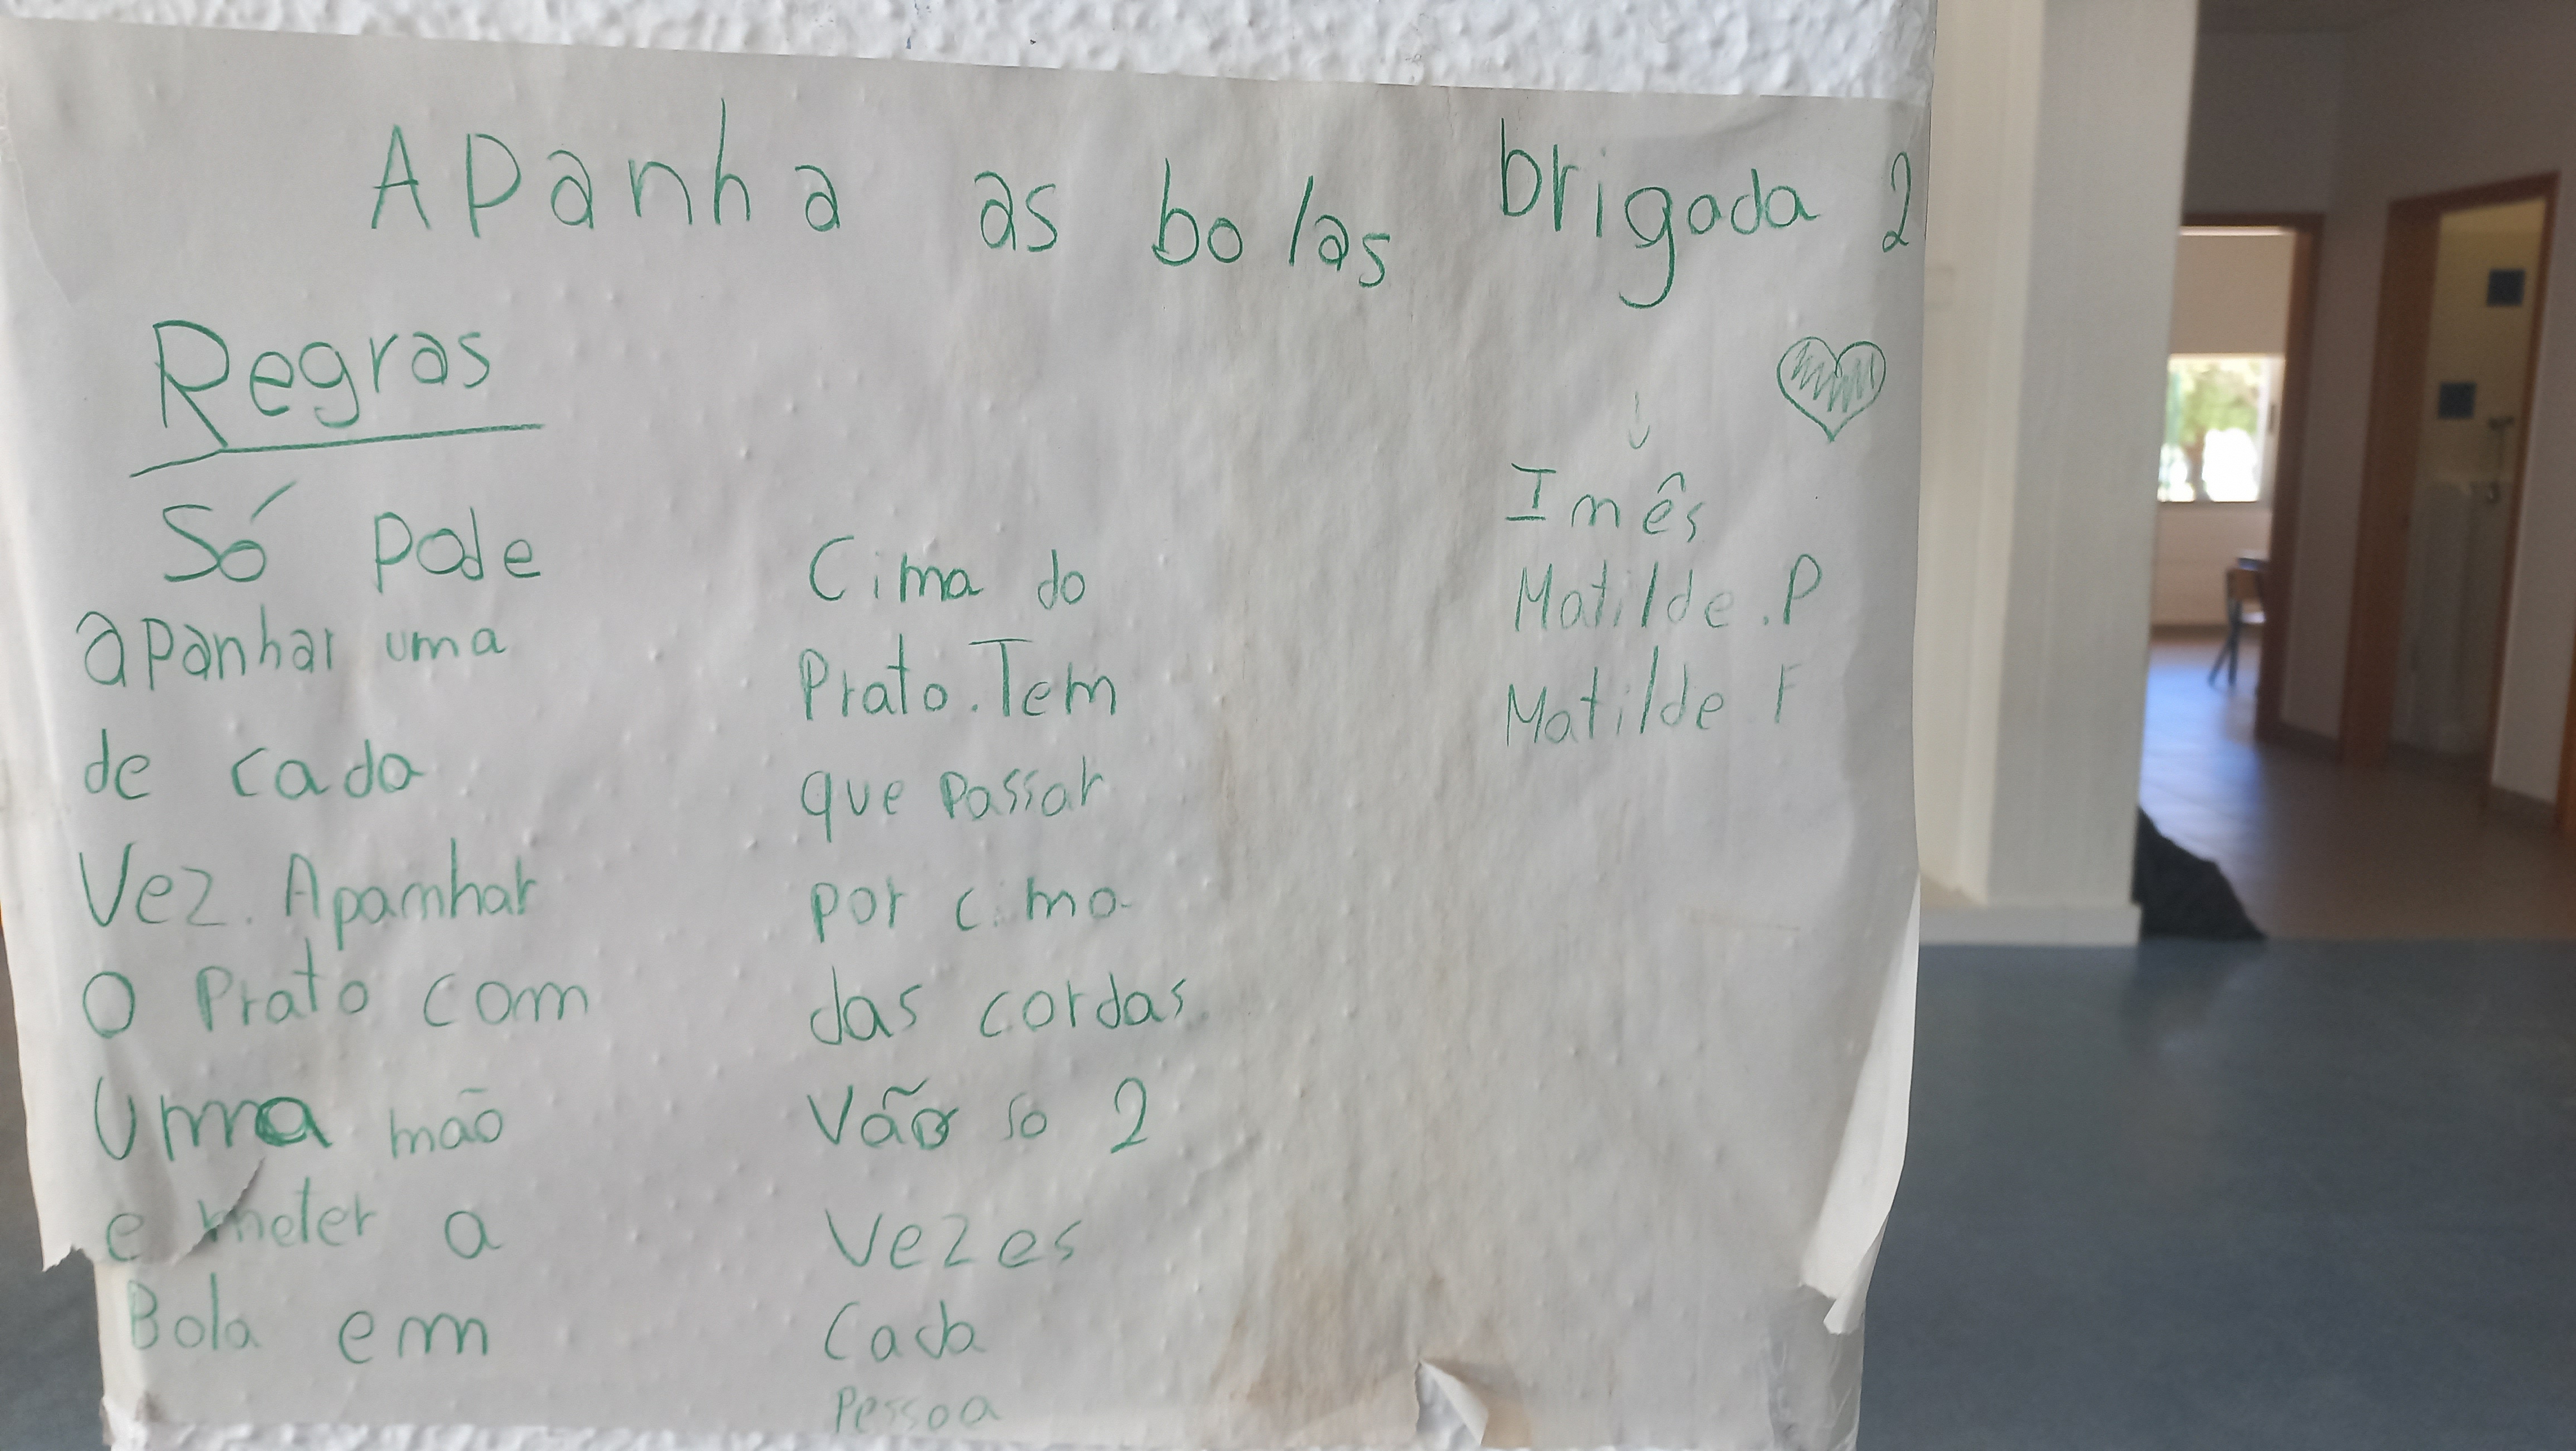 Apanha as bolas brigada 2
Regras
Só pode
apanhar uma
de cada
Vez. Apamhar
O Prato com
Uma mão
e meter a
Bola em
Cima do
Prato. Tem
que passar
por cima
das cordas.
Vão so 2
Vezes
Cada
Pessoa
Imês
Matilde. P
Matilde F